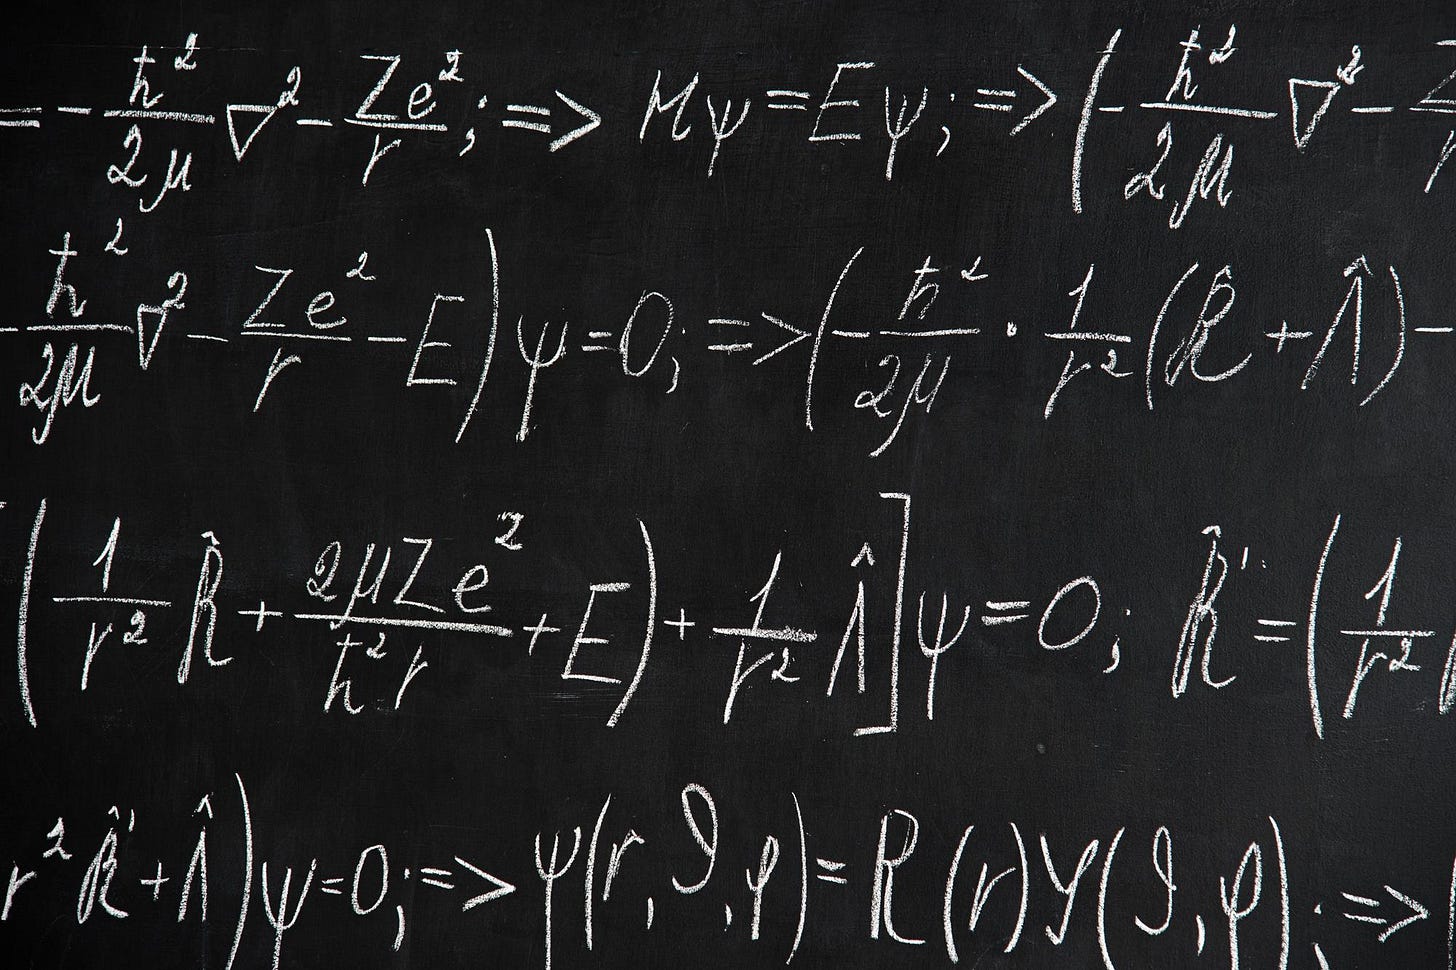 = - ħ²/2μ ∇² - Ze²/r ; => Hψ = Eψ; => (- ħ²/2μ ∇² - Z
- ħ²/2μ ∇² - Ze²/r - E) ψ = 0; => (- ħ²/2μ · 1/r² (R̂ + Λ̂) -
(1/r² R̂ + 2μZe²/ħ²r + E) + 1/r² Λ̂] ψ = 0; R̂' = (1/r²
r² R̂' + Λ̂) ψ = 0; => ψ(r, ϑ, φ) = R(r) Y(ϑ, φ); =>